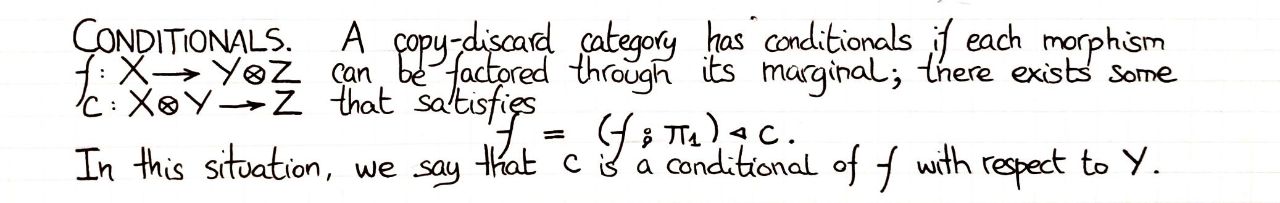 CONDITIONALS. A copy-discard category has conditionals if each morphism
f: X → Y⊗Z can be factored through its marginal; there exists some
c: X⊗Y → Z that satisfies
f = (f ; π₁) ◁ c.
In this situation, we say that c is a conditional of f with respect to Y.